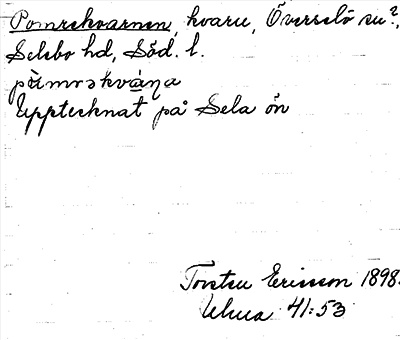 Pomrekvarnen, kvarn, Överselö sn?,
Selebo hd, Söd. l.
pòmrəkváɳa
Upptecknat på Sela ön
Torsten Ericsson 1898.
Ulma 41:53